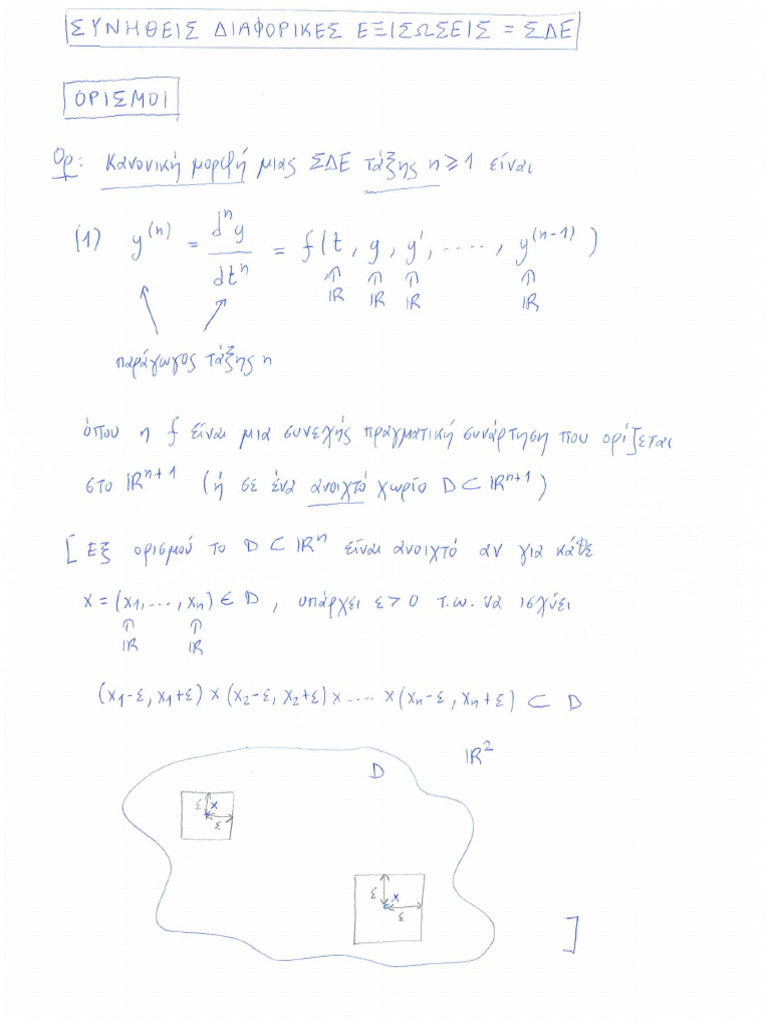 ΣΥΝΗΘΕΙΣ ΔΙΑΦΟΡΙΚΕΣ ΕΞΙΣΩΣΕΙΣ = ΣΔΕ
ΟΡΙΣΜΟΙ
Ορ: Κανονική μορφή μιας ΣΔΕ τάξης n ≥ 1 είναι
(1) y^(n) = d^n y / dt^n = f(t, y, y', ...., y^(n-1))
⇑ ⇑ ⇑ ⇑
ℝ ℝ ℝ ℝ
παράγωγος τάξης n
όπου η f είναι μια συνεχής πραγματική συνάρτηση που ορίζεται
στο ℝ^n+1 (ή σε ένα ανοιχτό χωρίο D ⊂ ℝ^n+1)
[ Εξ ορισμού το D ⊂ ℝ^n είναι ανοιχτό αν για κάθε
x = (x1, ..., xn) ∈ D, υπάρχει ε > 0 τ.ω. να ισχύει
⇑ ⇑
ℝ ℝ
(x1-ε, x1+ε) × (x2-ε, x2+ε) × .... × (xn-ε, xn+ε) ⊂ D
D ℝ^2
ε x
ε
ε x
ε
]